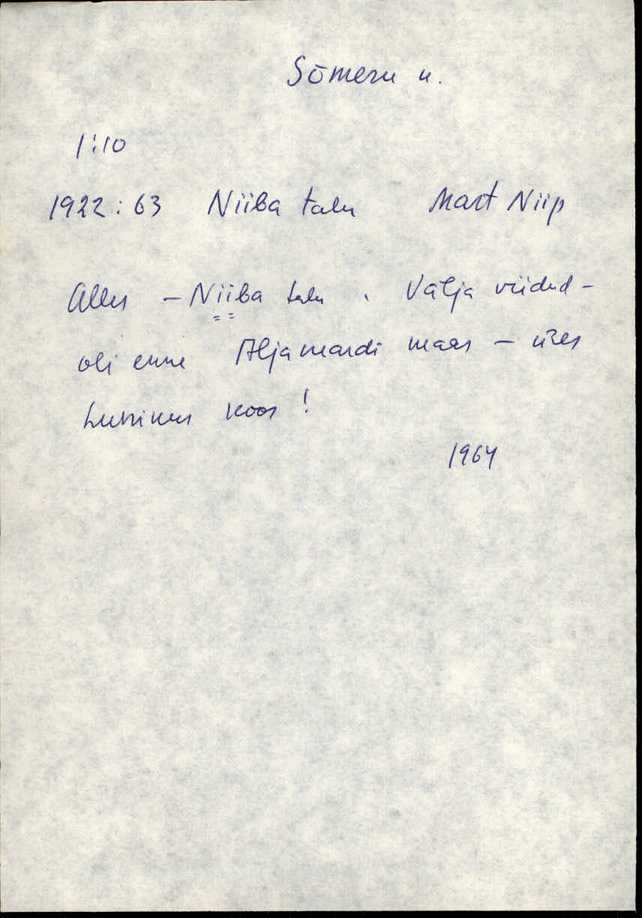 Sõmeru u.
1:10
1922:63 Niiba talu Mart Niip
Alles – Niiba talu. Välja viidud –
oli enne Aljamardi maas – üks
inimes koos!
1964